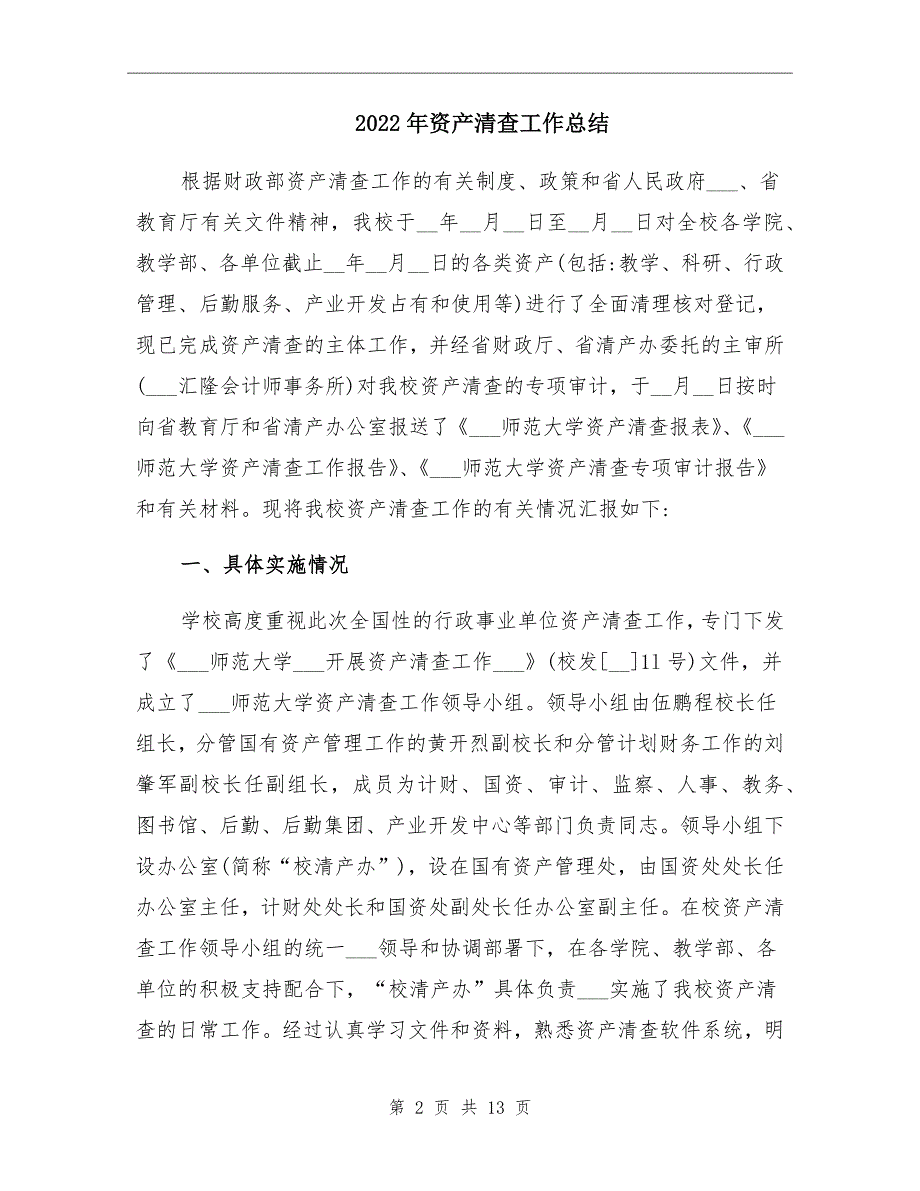 2022 年资产清查工作总结
根据财政部资产清查工作的有关制度、政策和省人民政府___、省
教育厅有关文件精神，我校于__年__月__日至__月__日对全校各学院、
教学部、各单位截止__年__月__日的各类资产(包括:教学、科研、行政
管理、后勤服务、产业开发占有和使用等)进行了全面清理核对登记，
现已完成资产清查的主体工作，并经省财政厅、省清产办委托的主审所
(___汇隆会计师事务所)对我校资产清查的专项审计，于__月__日按时
向省教育厅和省清产办公室报送了《___师范大学资产清查报表》、《___
师范大学资产清查工作报告》、《___师范大学资产清查专项审计报告》
和有关材料。现将我校资产清查工作的有关情况汇报如下:
一、具体实施情况
学校高度重视此次全国性的行政事业单位资产清查工作，专门下发
了《___师范大学___开展资产清查工作___》(校发[__]11 号)文件，并
成立了___师范大学资产清查工作领导小组。领导小组由伍鹏程校长任
组长，分管国有资产管理工作的黄开烈副校长和分管计划财务工作的刘
肇军副校长任副组长，成员为计财、国资、审计、监察、人事、教务、
图书馆、后勤、后勤集团、产业开发中心等部门负责同志。领导小组下
设办公室(简称“校清产办”)，设在国有资产管理处，由国资处处长任
办公室主任，计财处处长和国资处副处长任办公室副主任。在校资产清
查工作领导小组的统一___领导和协调部署下，在各学院、教学部、各
单位的积极支持配合下，“校清产办”具体负责___实施了我校资产清
查的日常工作。经过认真学习文件和资料，熟悉资产清查软件系统，明
第 2 页 共 13 页